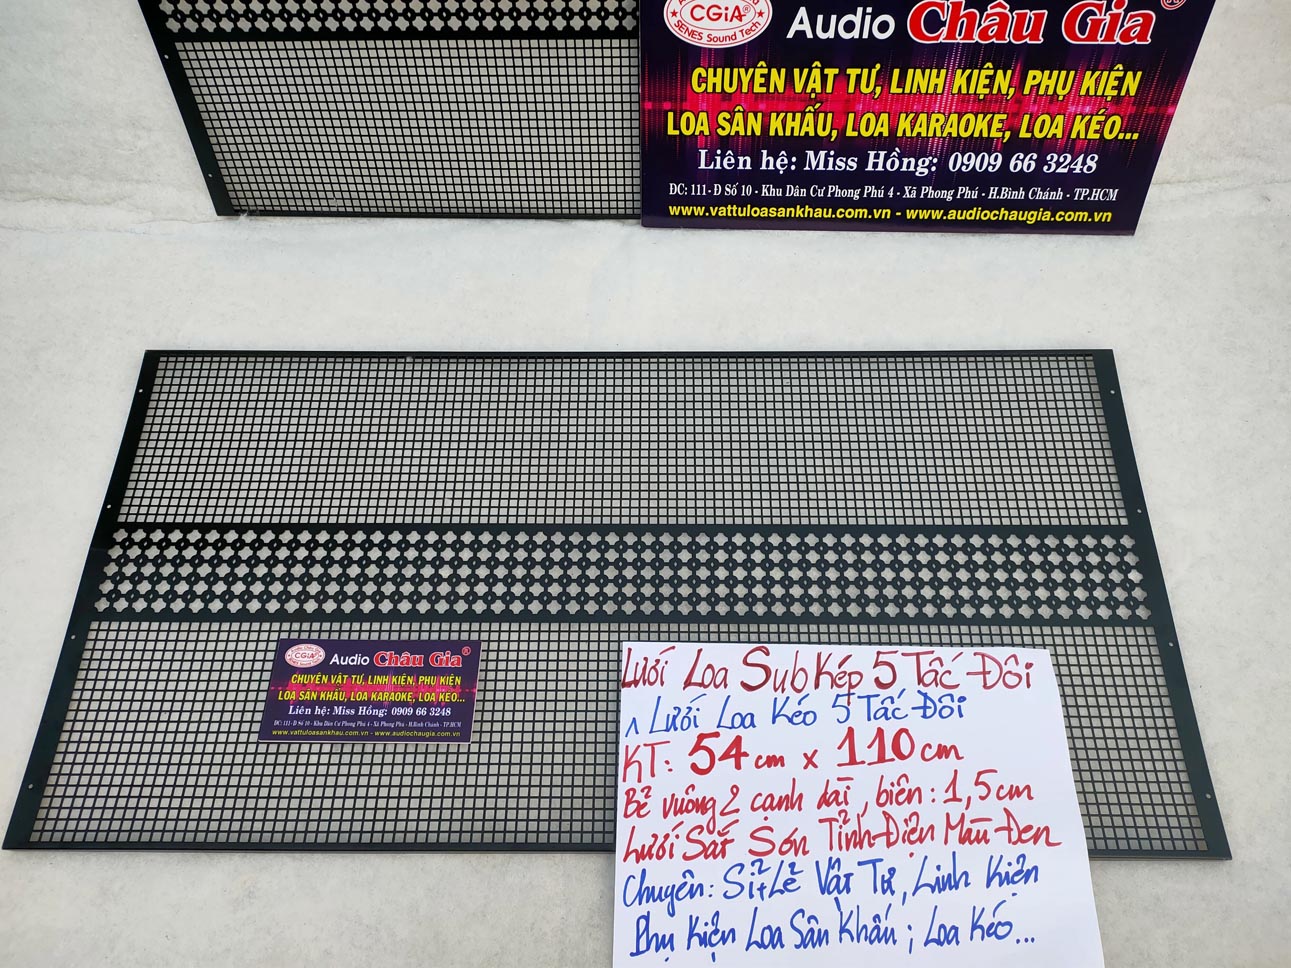 CGiA®
SENES Sound Tech
Audio Châu Gia®
CHUYÊN VẬT TƯ, LINH KIỆN, PHỤ KIỆN
LOA SÂN KHẤU, LOA KARAOKE, LOA KÉO...
Liên hệ: Miss Hồng: 0909 66 3248
ĐC: 111- Đ Số 10 - Khu Dân Cư Phong Phú 4 - Xã Phong Phú - H.Bình Chánh - TP.HCM
www.vattuloasankhau.com.vn - www.audiochaugia.com.vn
CGiA
Audio Châu Gia®
CHUYÊN VẬT TƯ, LINH KIỆN, PHỤ KIỆN
LOA SÂN KHẤU, LOA KARAOKE, LOA KÉO...
Liên hệ: Miss Hồng: 0909 66 3248
ĐC: 111- Đ Số 10 - Khu Dân Cư Phong Phú 4 - Xã Phong Phú - H.Bình Chánh - TP.HCM
www.vattuloasankhau.com.vn - www.audiochaugia.com.vn
Lưới Loa Sub Kép 5 Tấc Đôi
Lưới Loa Kéo 5 Tấc Đôi
KT: 54 cm x 110 cm
Bẻ vuông 2 cạnh dài, biên: 1,5 cm
Lưới Sắt Sơn Tĩnh Điện Màu Đen
Chuyên: Sỉ + Lẻ Vật Tư, Linh Kiện
Phụ Kiện Loa Sân Khấu; Loa Kéo...